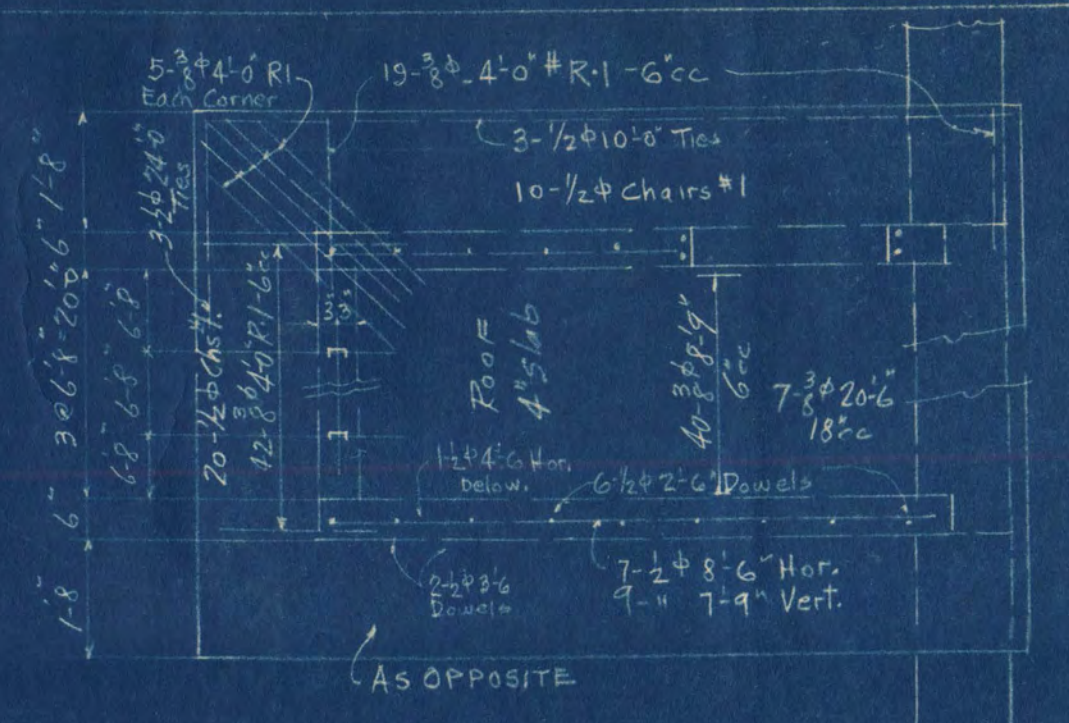 5-3/8ϕ4'-0" R1
Each Corner
19-3/8ϕ_4'-0" #R.1-6"cc
3-1/2ϕ10'-0" Ties
10-1/2ϕ Chairs #1
3-1/2ϕ24'-0"
Ties
1'-8"
6"
3@6'-8"=20'-0"
6"
1'-8"
6'-8"
6'-8"
6'-8"
20-1/2ϕChs
42-3/8ϕ4'-0"R.1-6"cc
3"3"
Roof
4"Slab
40-3/8ϕ8'-9"
6"cc
7-3/8ϕ20'-6"
18"cc
1-1/2ϕ4'-6 Hor.
Below.
6-1/2ϕ2'-6" Dowels
2-1/2ϕ3'-6
Dowels
7-1/2ϕ8'-6" Hor.
9-" 7'-9" Vert.
AS OPPOSITE